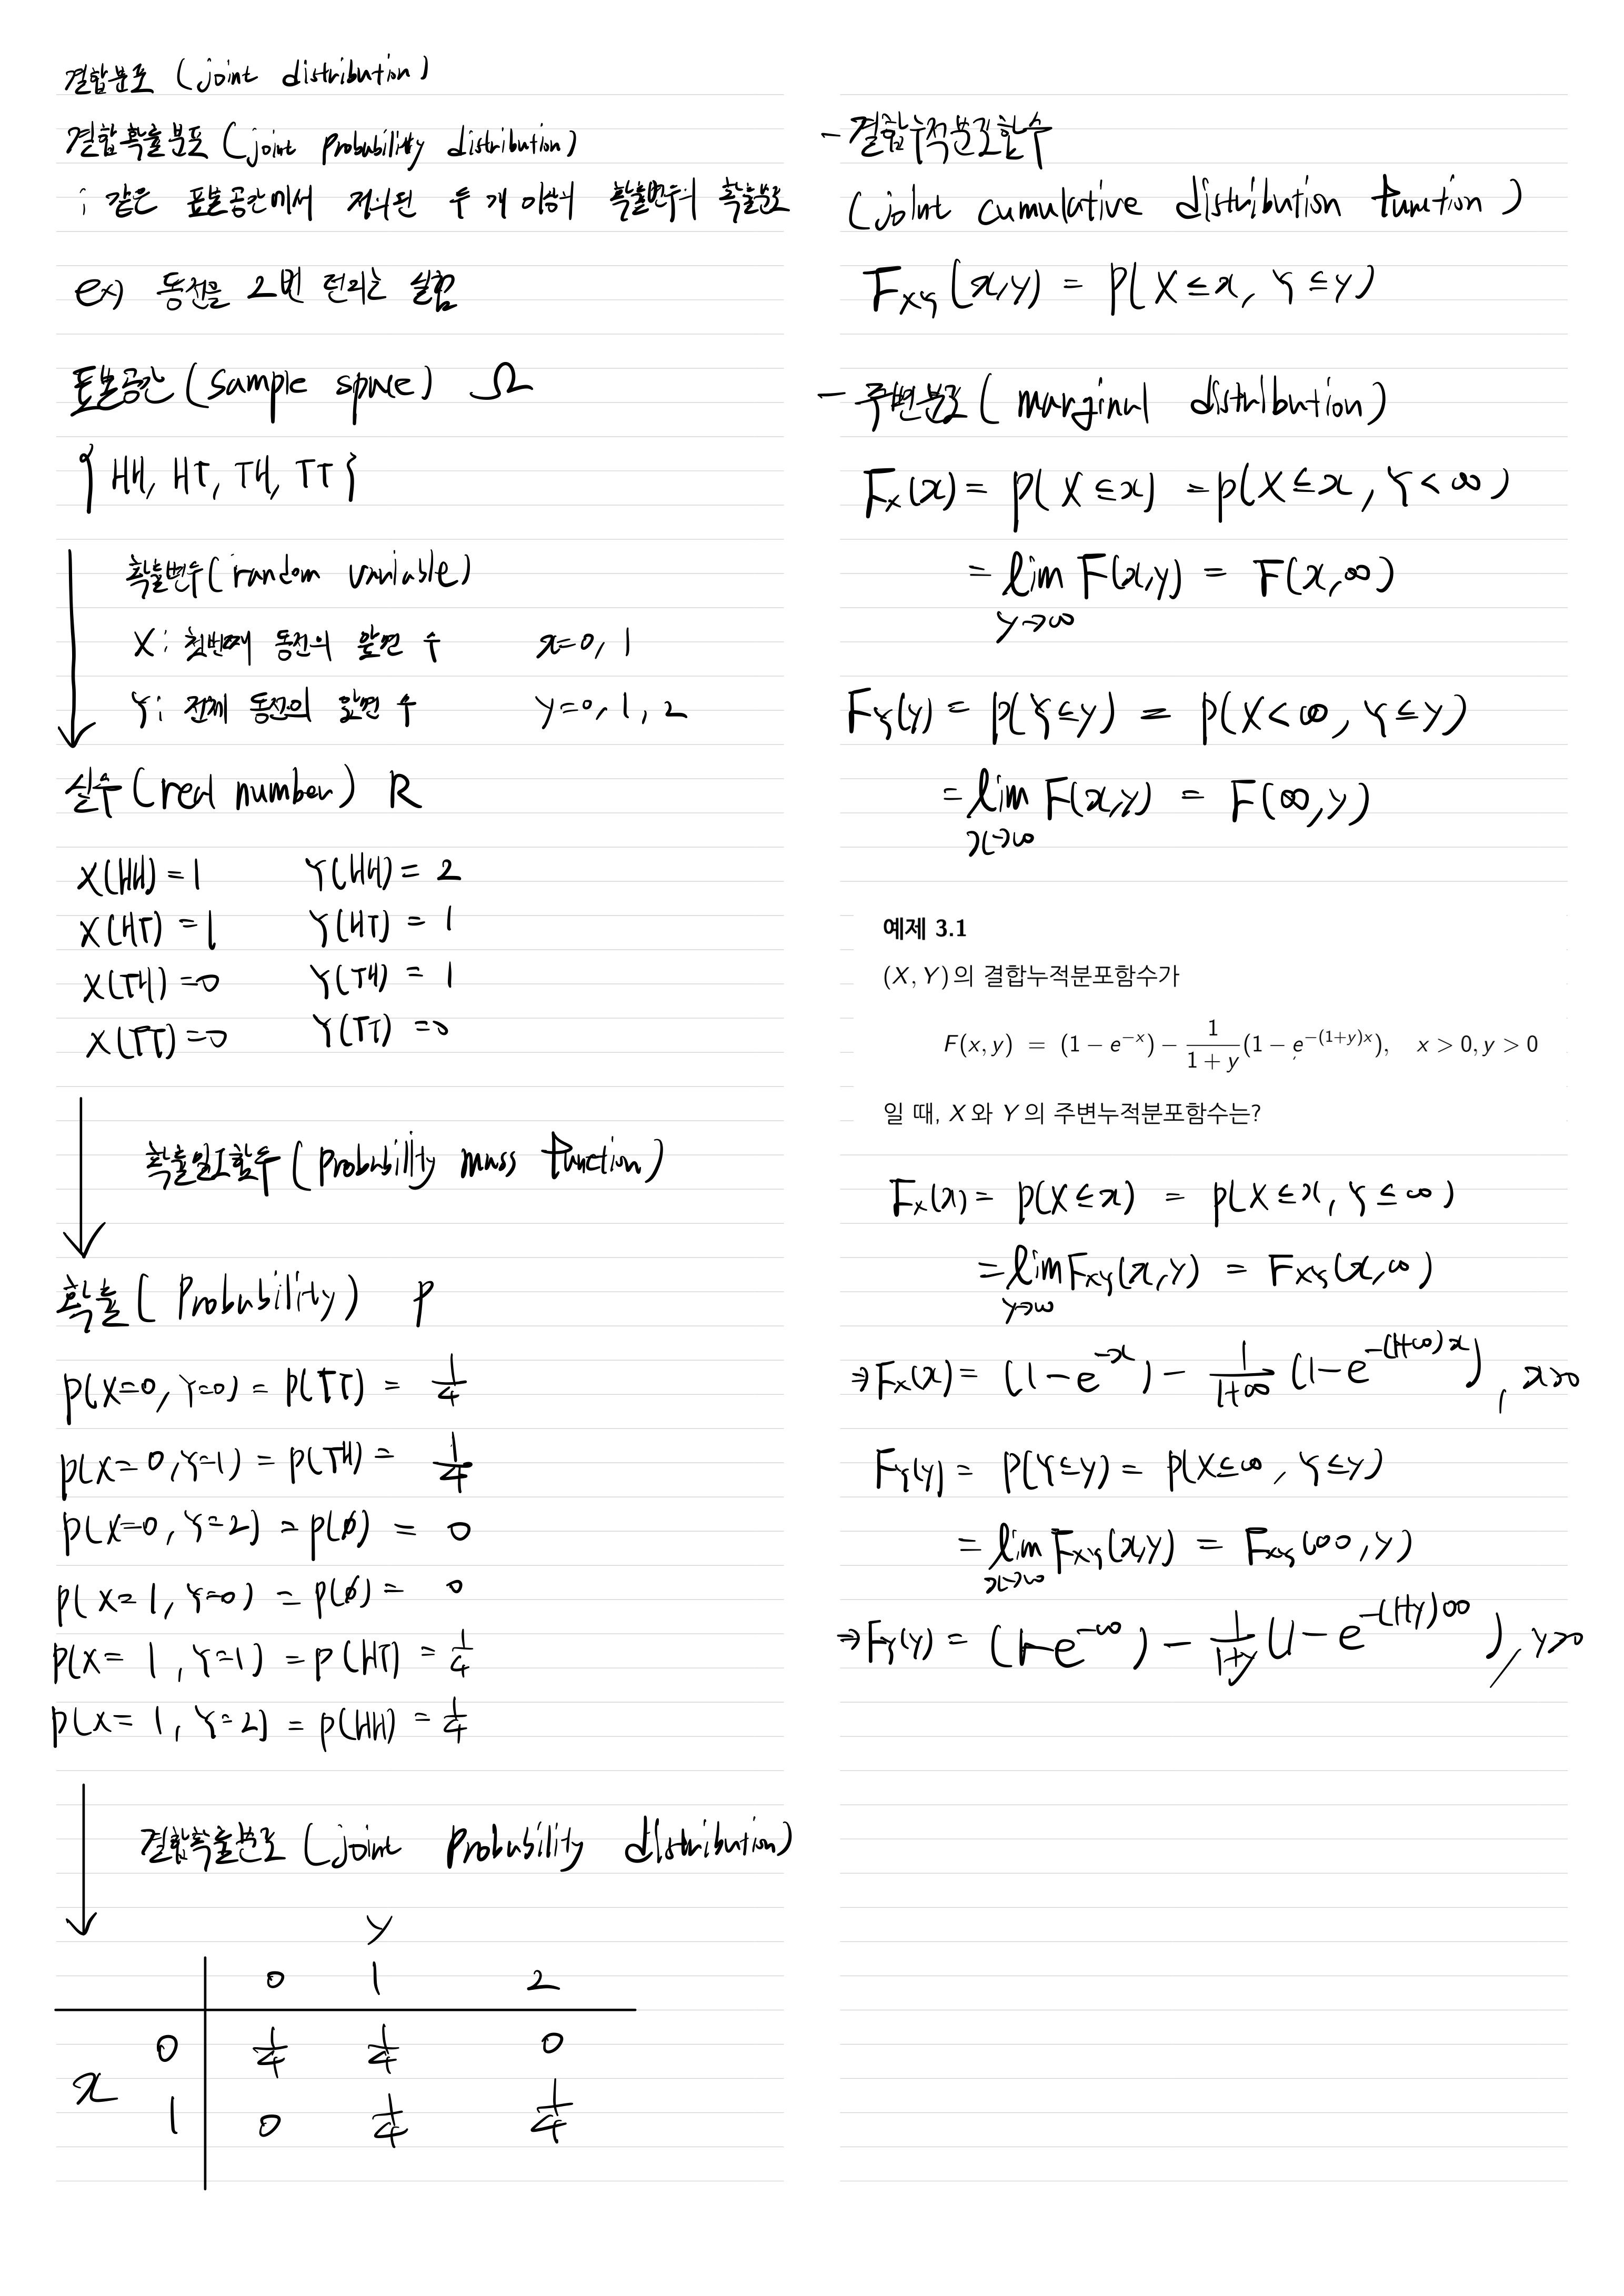 결합분포 (joint distribution)
결합확률분포 (joint probability distribution)
; 같은 표본공간에서 정의된 두 개 이상의 확률변수의 확률분포
ex) 동전을 2번 던지는 실험
표본공간 (sample space) Ω
{HH, HT, TH, TT}
확률변수 (random variable)
X; 첫번째 동전의 앞면 수 x=0, 1
Y; 전체 동전의 앞면 수 y=0, 1, 2
실수 (real number) R
X(HH) = 1 Y(HH) = 2
X(HT) = 1 Y(HT) = 1
X(TH) = 0 Y(TH) = 1
X(TT) = 0 Y(TT) = 0
확률질량함수 (probability mass function)
확률 (Probability) P
P(X=0, Y=0) = P(TT) = 1/4
P(X=0, Y=1) = P(TH) = 1/4
P(X=0, Y=2) = P(∅) = 0
P(X=1, Y=0) = P(∅) = 0
P(X=1, Y=1) = P(HT) = 1/4
P(X=1, Y=2) = P(HH) = 1/4
결합확률분포 (joint probability distribution)
y
0 1 2
0 1/4 1/4 0
x
1 0 1/4 1/4
- 결합누적분포함수
(joint cumulative distribution function)
F_XY(x,y) = P(X≤x, Y≤y)
- 주변분포 (marginal distribution)
F_X(x) = P(X≤x) = P(X≤x, Y<∞)
= lim_{y→∞} F(x,y) = F(x,∞)
F_Y(y) = P(Y≤y) = P(X<∞, Y≤y)
= lim_{x→∞} F(x,y) = F(∞,y)
예제 3.1
(X, Y)의 결합누적분포함수가
F(x, y) = (1 − e^{−x}) − 1/(1 + y) (1 − e^{−(1+y)x}), x > 0, y > 0
일 때, X 와 Y 의 주변누적분포함수는?
F_X(x) = P(X≤x) = P(X≤x, Y≤∞)
= lim_{y→∞} F_XY(x,y) = F_XY(x,∞)
⇒ F_X(x) = (1−e^{−x}) − 1/(1+∞) (1−e^{−(1+∞)x}), x>0
F_Y(y) = P(Y≤y) = P(X≤∞, Y≤y)
= lim_{x→∞} F_XY(x,y) = F_XY(∞,y)
⇒ F_Y(y) = (1−e^{−∞}) − 1/(1+y) (1−e^{−(1+y)∞}), y>0